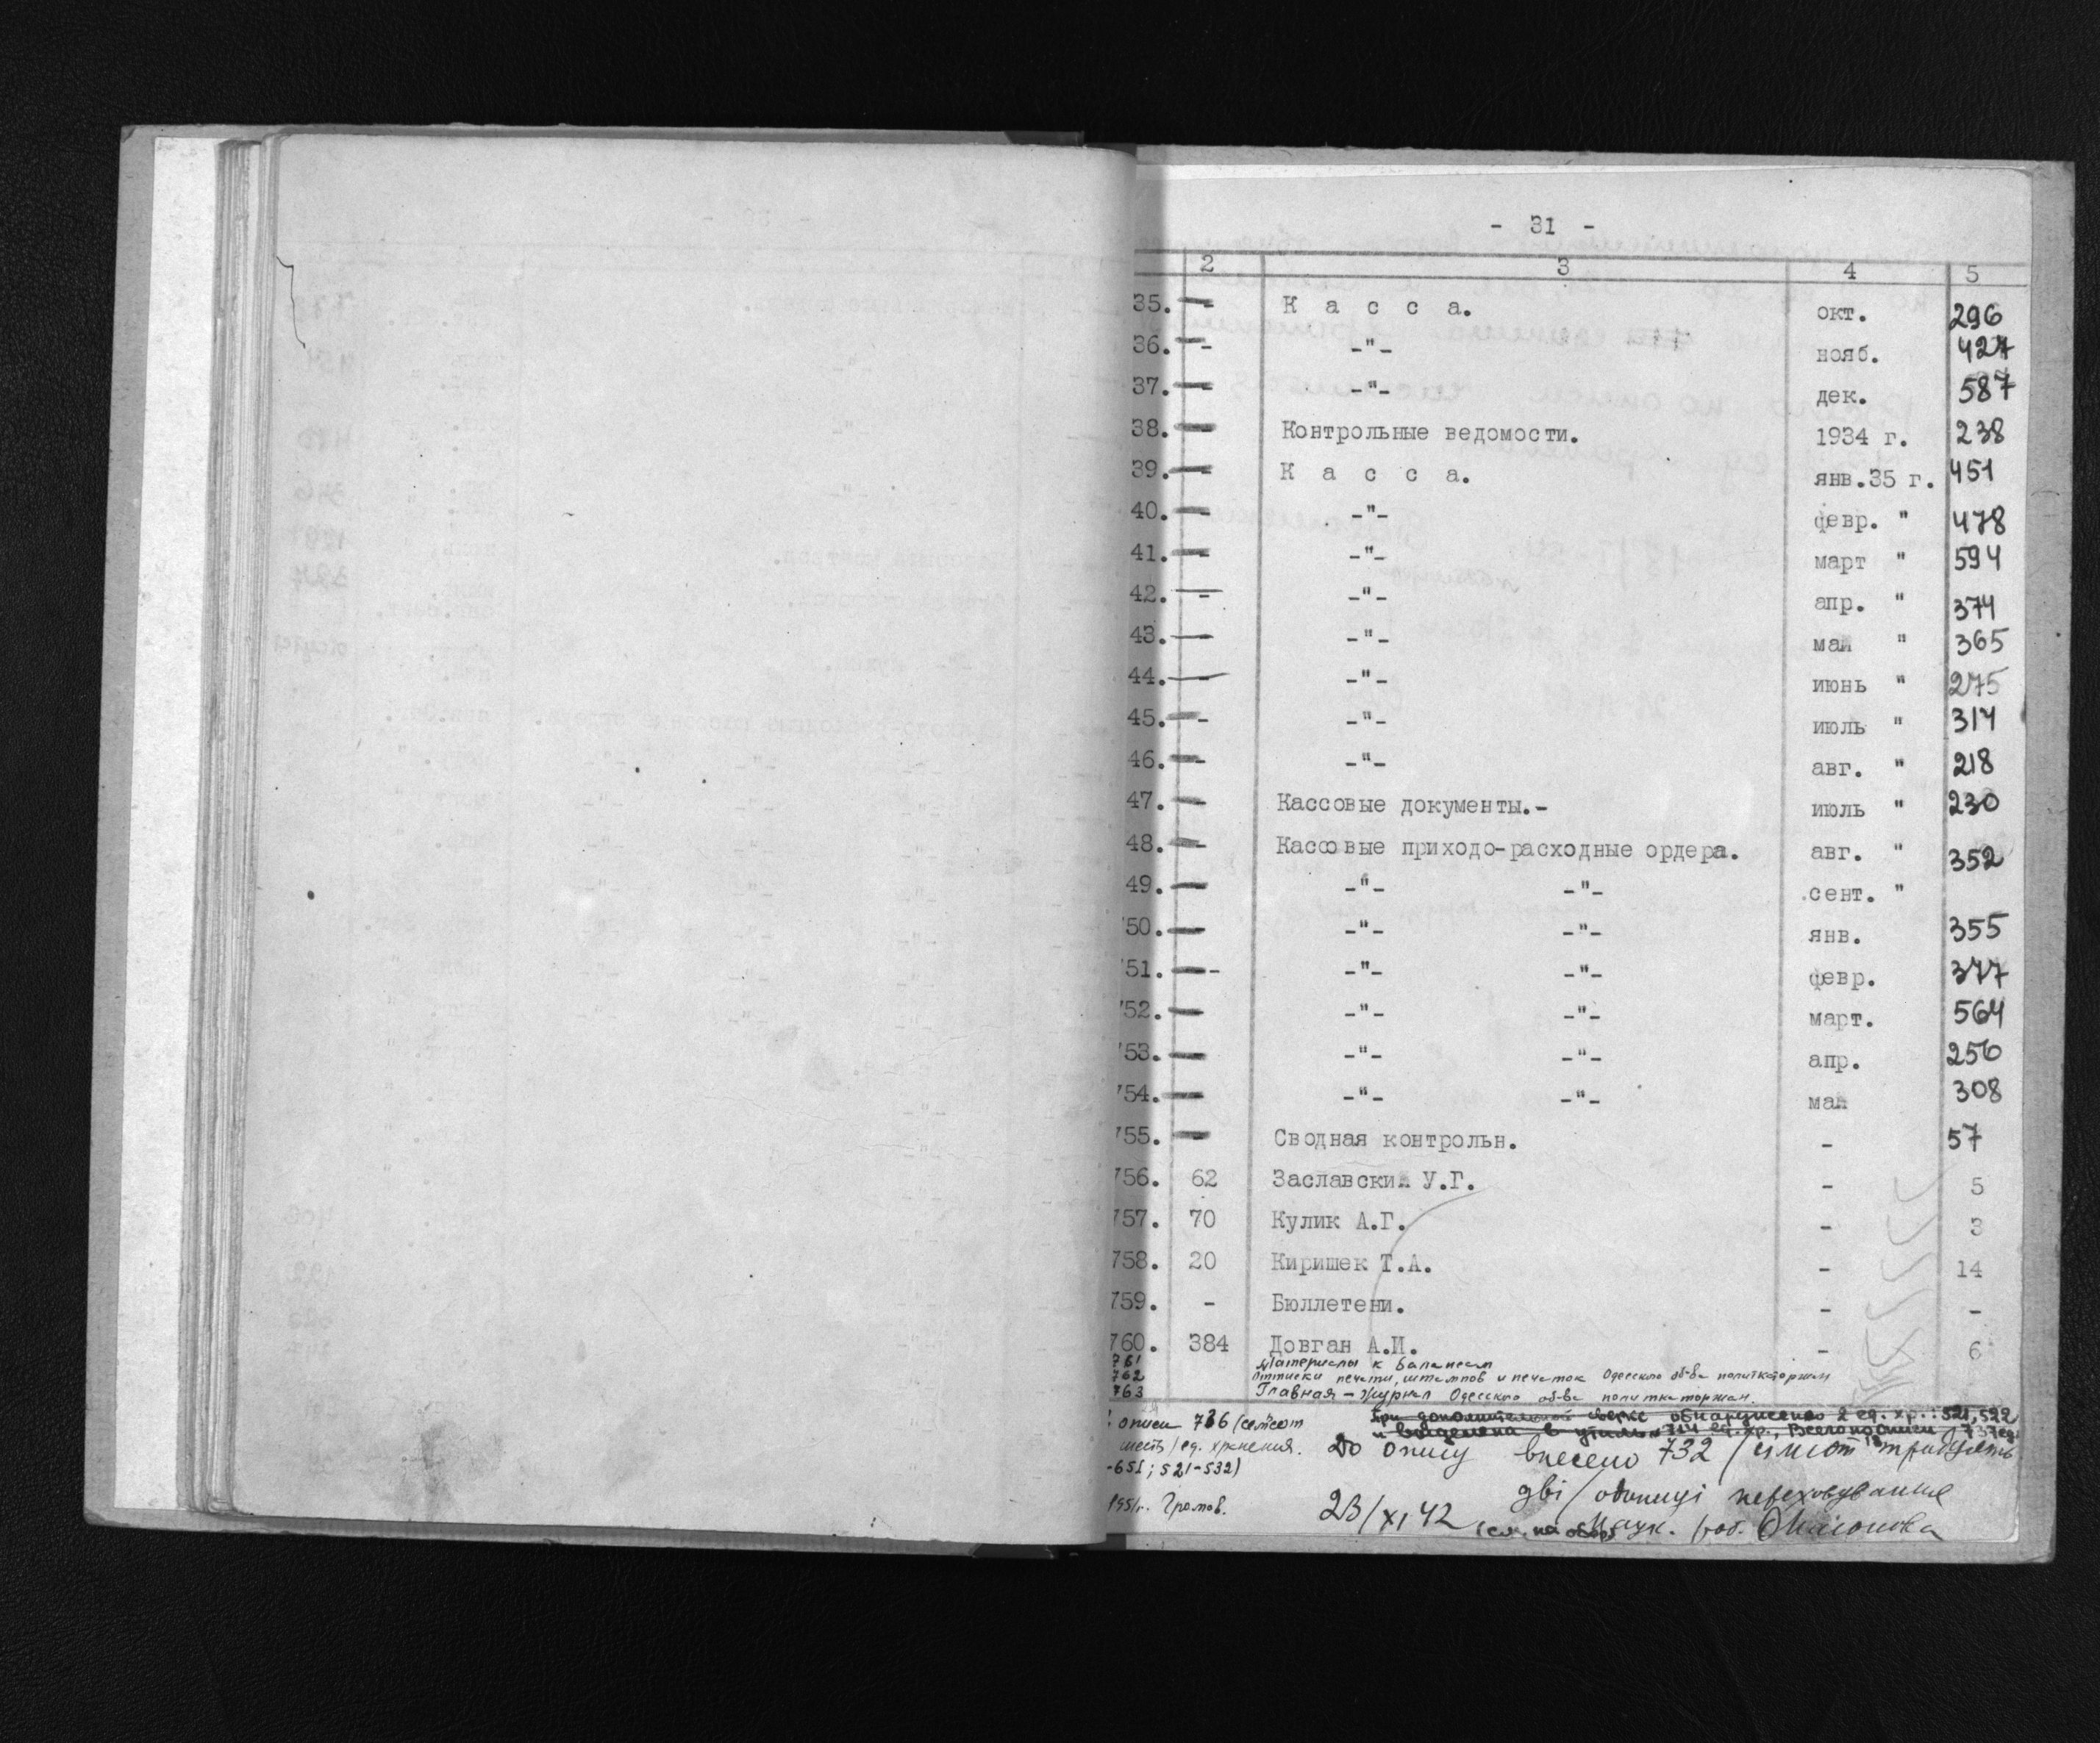 - 31 -
2 3 4 5
35. - К а с с а. окт. 296
36. - -"- нояб. 427
37. - -"- дек. 587
38. - Контрольные ведомости. 1934 г. 238
39. - К а с с а. янв.35 г. 451
40. - -"- февр. " 478
41. - -"- март " 594
42. - -"- апр. " 374
43. - -"- май " 365
44. - -"- июнь " 275
45. - -"- июль " 314
46. - -"- авг. " 218
47. - Кассовые документы.- июль " 230
48. - Кассовые приходо-расходные ордера. авг. " 352
49. - -"- -"- сент. "
750. - -"- -"- янв. 355
751. - -"- -"- февр. 377
752. - -"- -"- март. 564
753. - -"- -"- апр. 256
754. - -"- -"- май 308
755. - Сводная контрольн. - 57
756. 62 Заславский У.Г. - 5
757. 70 Кулик А.Г. - 3
758. 20 Киришек Т.А. - 14
759. - Бюллетени. - -
760. 384 Довган А.И. - 6
761 Материалы к балансам
762 Оттиски печати, штампов и печаток Одесского об-ва политкаторжан
763 Главная - журнал Одесского об-ва политкаторжан.
При дополнительной сверке обнаружено 2 ед. хр.: 521, 522
описи 736 (семьсот
шесть) ед. хранения.
-651; 521-532)
1951г. Громов.
До опису внесено 732 / сімсот тридцять
дві / одониці переховування
23/XI 42 Наук. роб.
(см. на обор.)